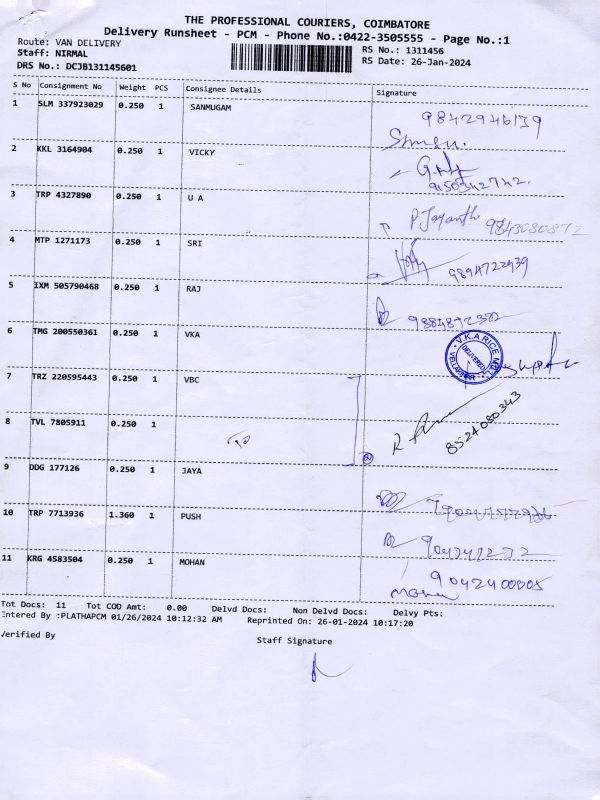 THE PROFESSIONAL COURIERS, COIMBATORE
Delivery Runsheet - PCM - Phone No.:0422-3505555 - Page No.:1
Route: VAN DELIVERY
RS No.: 1311456
Staff: NIRMAL
RS Date: 26-Jan-2024
DRS No.: DCJB131145601
S No Consignment No Weight PCS Consignee Details Signature
1 SLM 337923029 0.250 1 SANMUGAM 9842946139
2 KKL 3164904 0.250 1 VICKY
9150342742.
3 TRP 4327890 0.250 1 U A P Jayanth
4 MTP 1271173 0.250 1 SRI 9894722939
5 IXM 505790468 0.250 1 RAJ
6 TMG 200550361 0.250 1 VKA
V.K.A RICE MILL
7 TRZ 220595443 0.250 1 VBC
8524080343
8 TVL 7805911 0.250 1
9 DDG 177126 0.250 1 JAYA
10 TRP 7713936 1.360 1 PUSH
11 KRG 4583504 0.250 1 MOHAN 9042400005
Tot Docs: 11 Tot COD Amt: 0.00 Delvd Docs: Non Delvd Docs: Delvy Pts:
Entered By :PLATHAPCM 01/26/2024 10:12:32 AM Reprinted On: 26-01-2024 10:17:20
Verified By Staff Signature